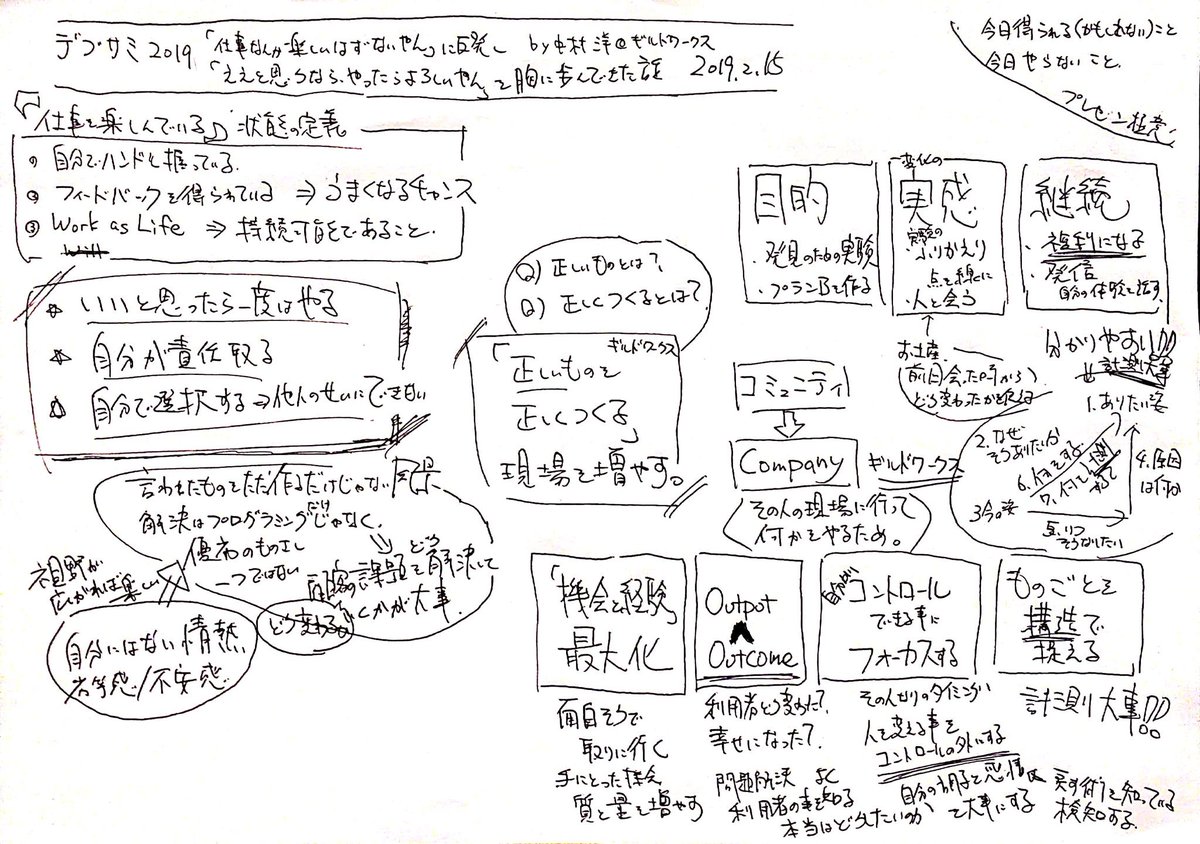 デブサミ2019 「仕事なんか楽しいはずないやん」に反発し by 中村洋@ギルドワークス
「ええと思うなら、やったらよろしいやん」を胸に歩んできた話 2019.2.15
今日得られる(かもしれない)こと
今日やらないこと
プレゼン極意
「仕事を楽しんでいる」状態の定義
① 自分でハンドル握っている
② フィードバックを得られている ⇒ うまくなるチャンス
③ Work as Life ⇒ 持続可能であること
☆ いいと思ったら一度はやる
☆ 自分が責任取る
☆ 自分で選択する⇒他人のせいにできない
Q) 正しいものとは?
Q) 正しくつくるとは?
ギルドワークス
「正しいものを
正しくつくる」
現場を増やす。
目的
・発見のための実験
・プランBを作る
変化の
実感
・実験の
ふりかえり
点を線に
・人と会う
お土産
(前回会った時から
どう変わったかを伝える
継続
・複利になる
・発信
自分の体験を話す
分かりやすい!!
計測大事
1.ありたい姿
2.なぜ
そうありたいか
3.今の姿
4.原因
は何か
5.いつ
そうなりたい
6.何をする
コミュニティ
Company
ギルドワークス
その人の現場に行って
何かをやるため。
言われたものをただ作るだけじゃない
解決はプログラミングだけじゃなく
優劣のものさし
一つではない
顧客の課題をどう解決して
どう変わる
いくかが大事
視野が
広がれば楽しい
自分にはない情熱
劣等感/不安感
「機会と経験」
最大化
面白そうで
取りに行く
手にとった機会
質と量を増やす
Output
Outcome
利用者どう変わった?
幸せになった?
問題解決 よく
利用者の事を知る
本当はどうしたいのか
自分が
コントロール
できる事に
フォーカスする
その人なりのタイミング
人を変える事を
コントロールの外にする
自分の調子と感情
を大事にする
ものごとを
構造で
捉える
計測大事!!
戻す術を知っている
検知する